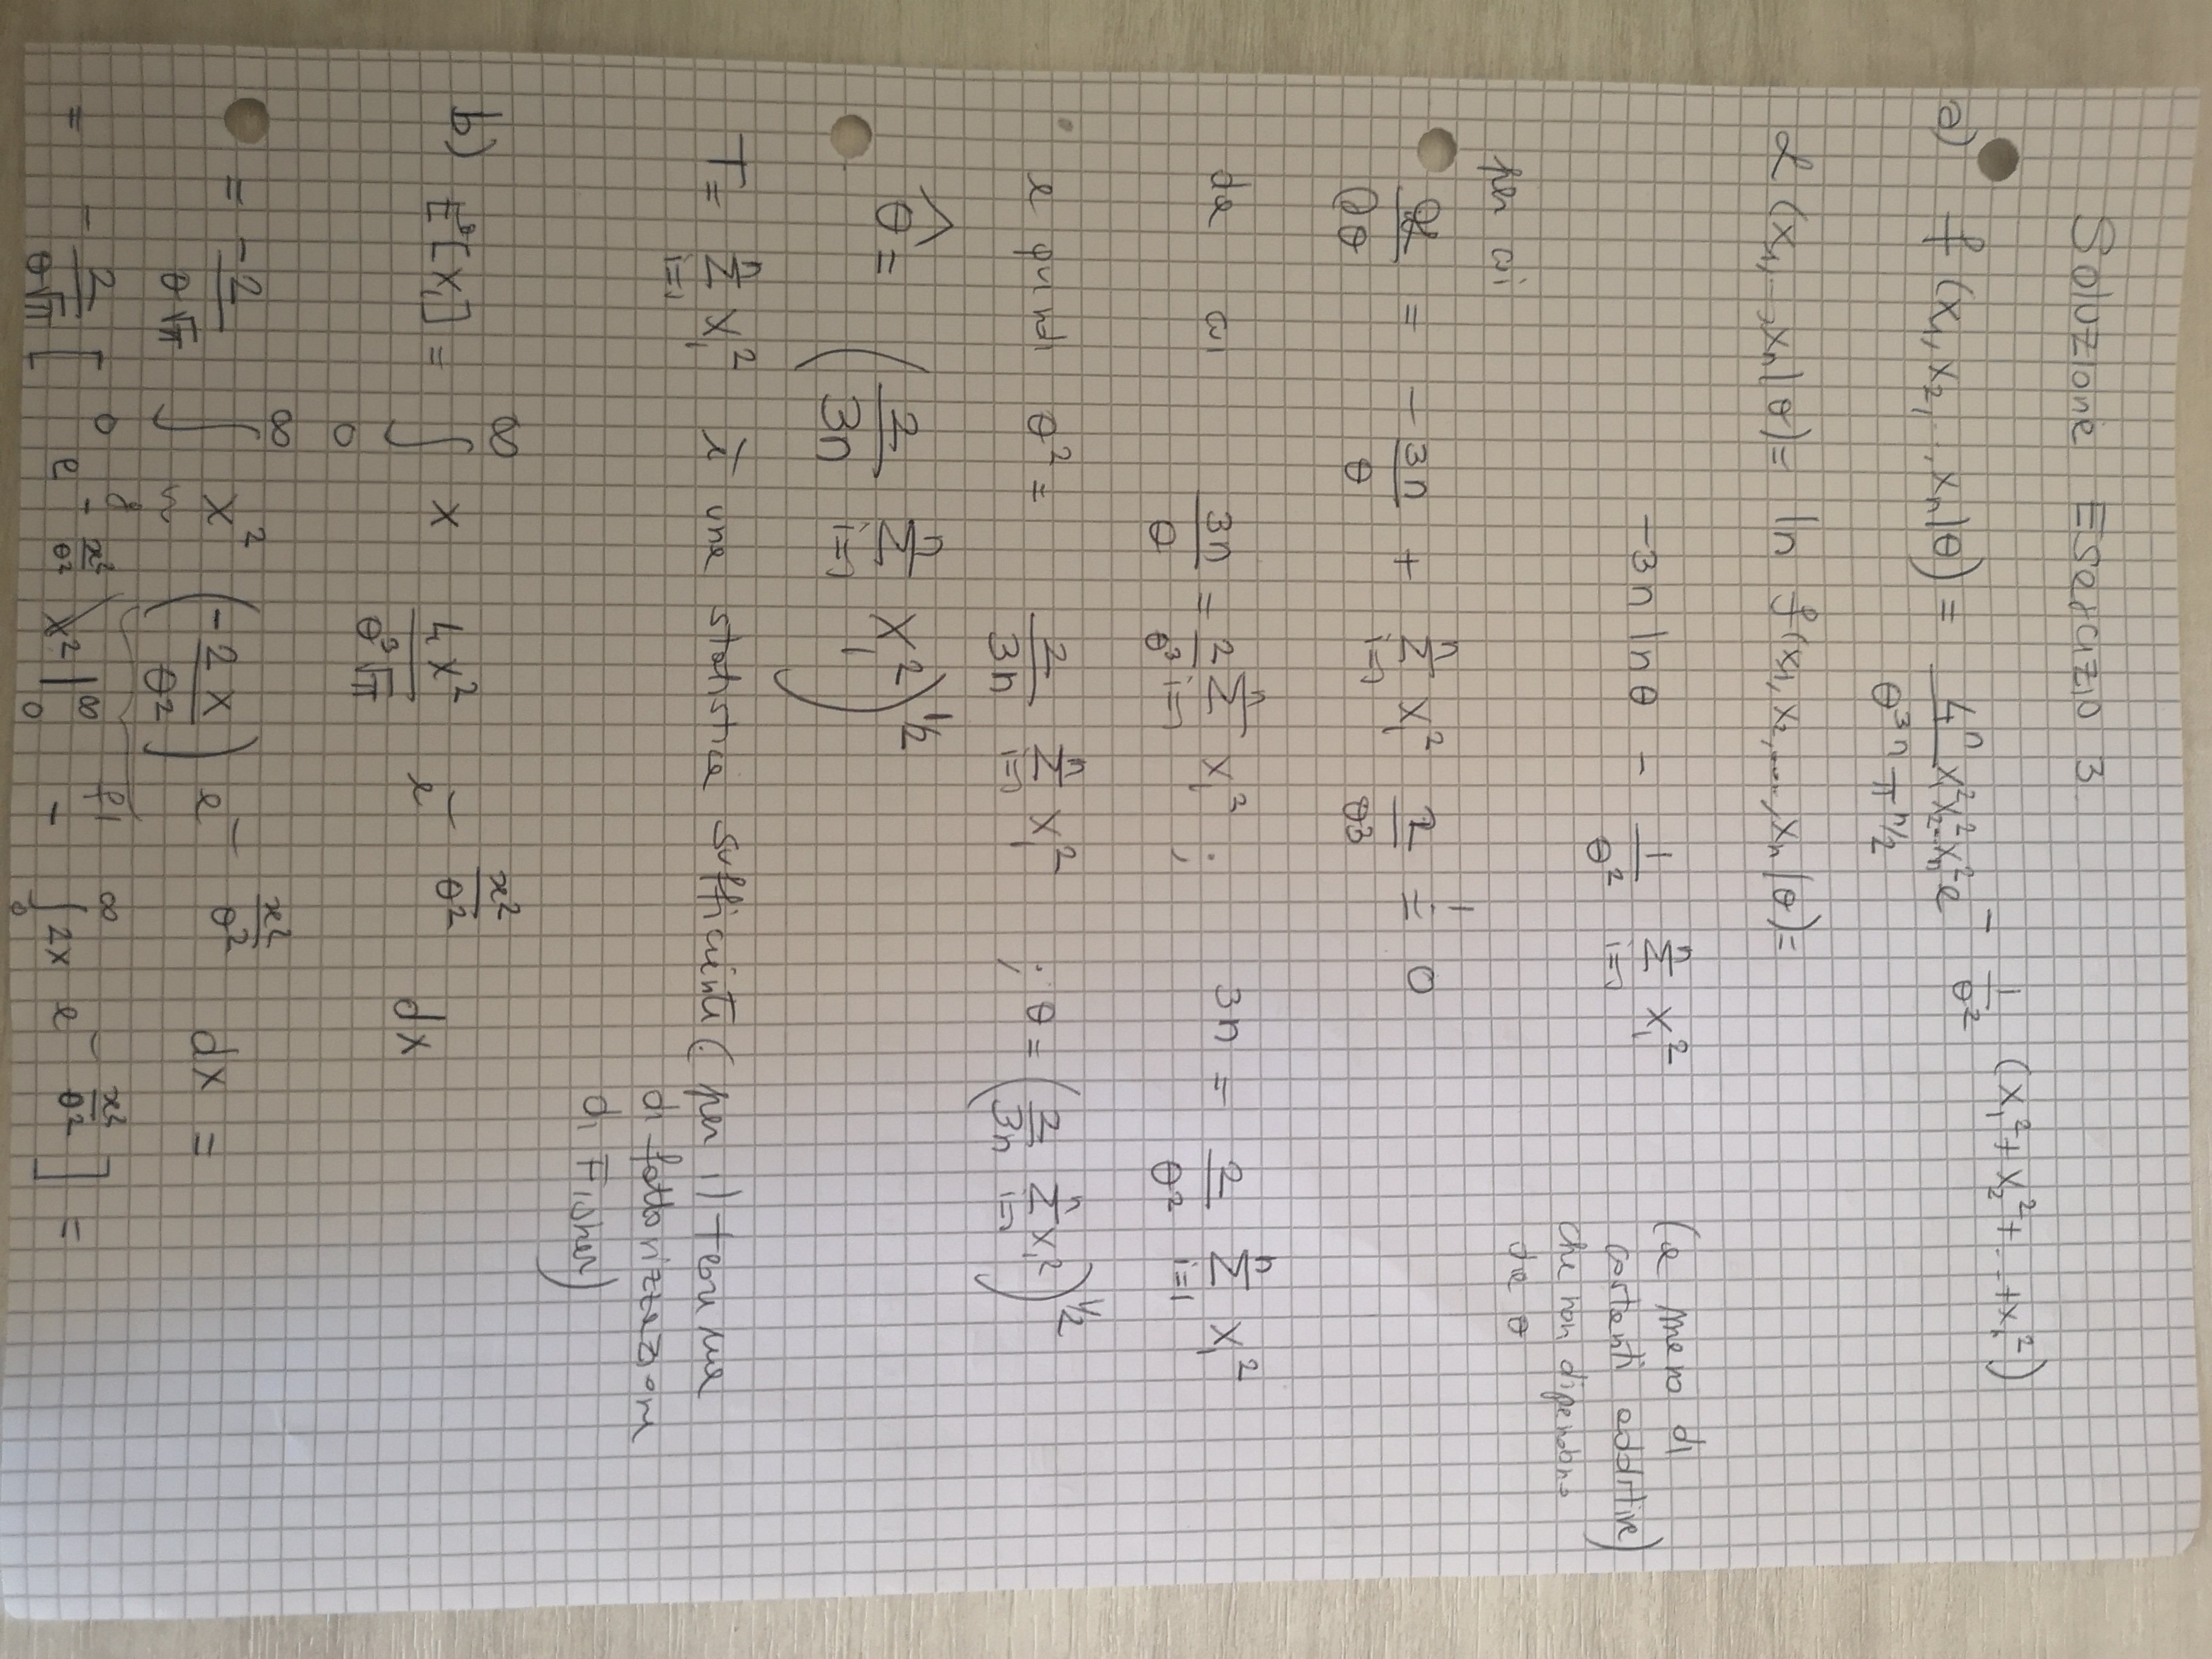 Soluzione Esercizio 3
a) f(x₁, x₂, .., xₙ|θ) = 4ⁿ/(θ³ⁿ π^(n/2)) x₁² x₂² .. xₙ² e^(- 1/θ² (x₁² + x₂² + ... + xₙ²))
ℒ(x₁, .., xₙ|θ) = ln f(x₁, x₂, ...., xₙ|θ) =
-3n ln θ - 1/θ² Σ_{i=1}^{n} xᵢ² (a meno di
costanti additive)
che non dipendono
da θ
per cui
∂ℒ/∂θ = - 3n/θ + Σ_{i=1}^{n} xᵢ² 2/θ³ =! 0
da cui 3n/θ = 2/θ³ Σ_{i=1}^{n} xᵢ² ; 3n = 2/θ² Σ_{i=1}^{n} xᵢ²
e quindi θ² = 2/3n Σ_{i=1}^{n} xᵢ² ; θ = (2/3n Σ_{i=1}^{n} xᵢ²)^(1/2)
θ̂ = (2/3n Σ_{i=1}^{n} Xᵢ²)^(1/2)
T = Σ_{i=1}^{n} Xᵢ² è una statistica sufficiente (per il teorema
di fattorizzazione
di Fisher)
b) E^θ[X₁] = ∫₀^∞ x 4x²/(θ³√π) e^(- x²/θ²) dx
= -2/(θ√π) ∫₀^∞ x² (-2x/θ²) e^(- x²/θ²) dx =
g f'
= - 2/(θ√π) [ e^(- x²/θ²) x² |₀^∞ - ∫₀^∞ 2x e^(- x²/θ²) ] =